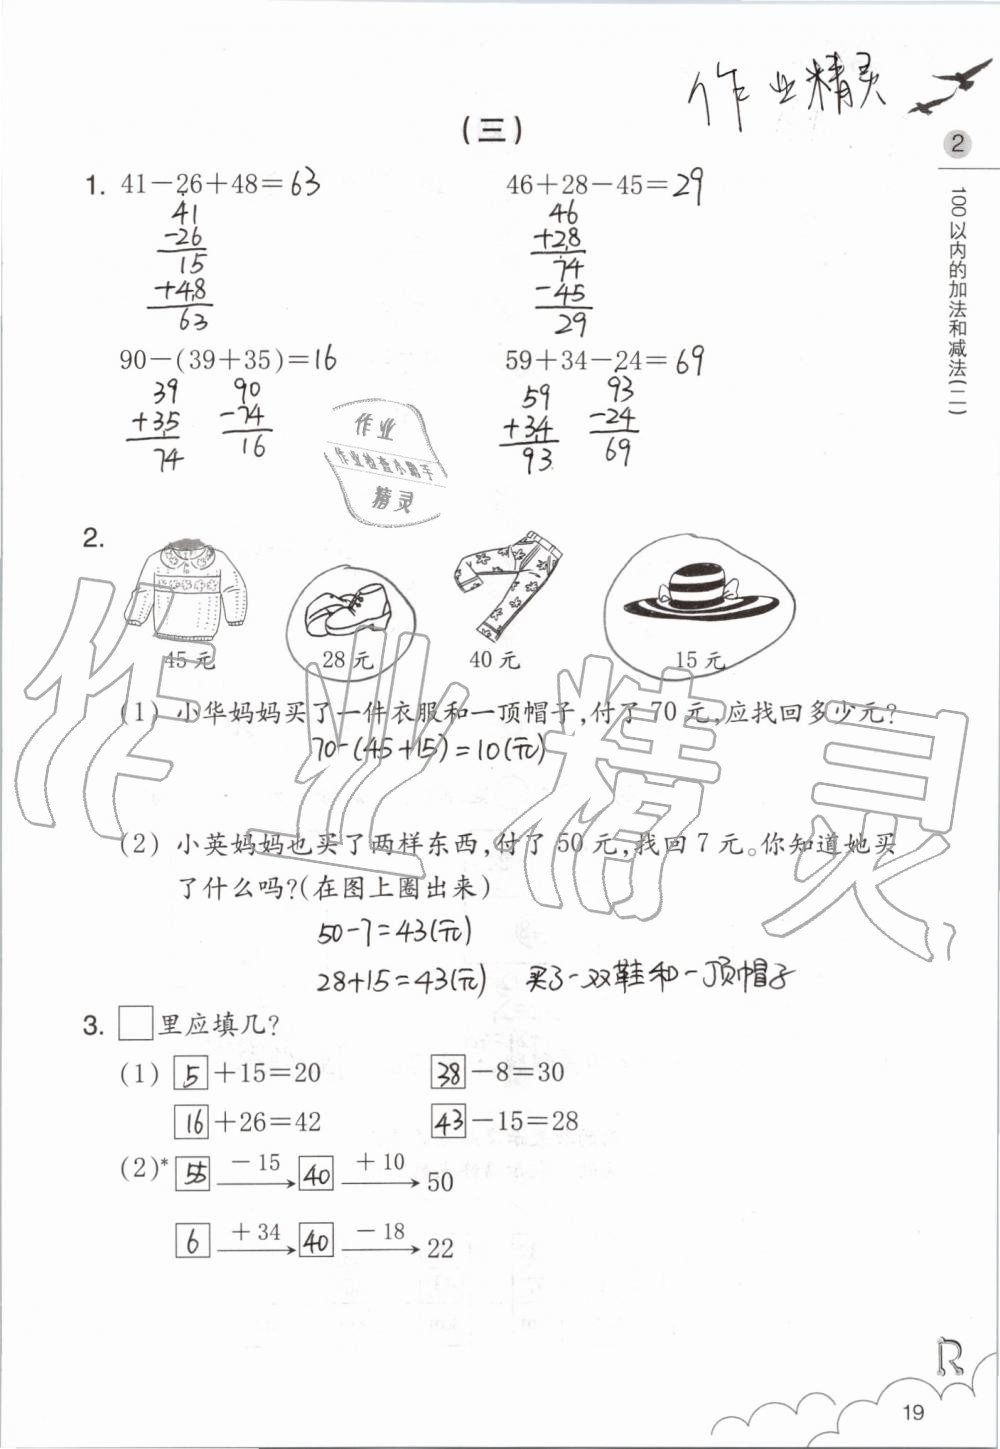 作业精灵
(三)
2
100以内的加法和减法(二)
1. 41-26+48=63
46+28-45=29
41
-26
15
+48
63
46
+28
74
-45
29
90-(39+35)=16
59+34-24=69
39
+35
74
90
-74
16
59
+34
93
93
-24
69
作业
作业检查小帮手
精灵
2.
45元 28元 40元 15元
(1) 小华妈妈买了一件衣服和一顶帽子,付了70元,应找回多少元?
70-(45+15)=10(元)
(2) 小英妈妈也买了两样东西,付了50元,找回7元。你知道她买
了什么吗?(在图上圈出来)
50-7=43(元)
28+15=43(元) 买了一双鞋和一顶帽子
作业精灵
3. □里应填几?
(1) 5+15=20 38-8=30
16+26=42 43-15=28
(2)* 55 -15 → 40 +10 → 50
6 +34 → 40 -18 → 22
R
19